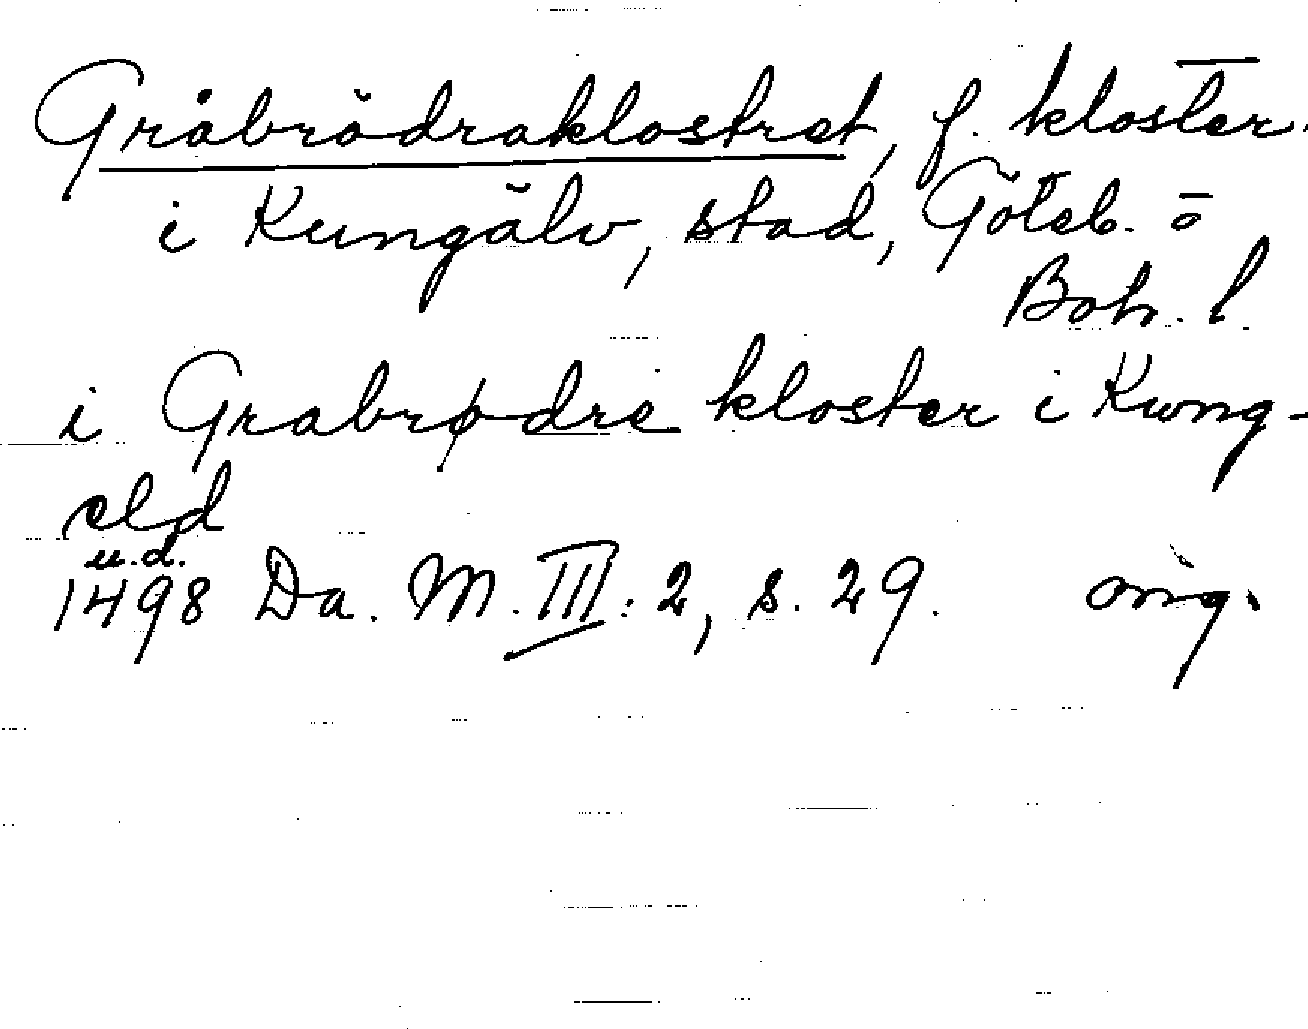 Gråbrödraklostret, f. kloster
i Kungälv, stad, Göteb. o
Boh. l.
i Grabrødre kloster i Kwng-
eld
u.d.
1498 Da. M. III: 2, s. 29. orig.